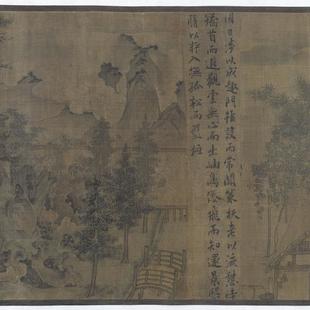 園日涉以成趣門雖設而常關策扶老以流憩時
矯首而遐觀雲無心而出岫鳥倦飛而知還景翳
翳以將入撫孤松而盤桓